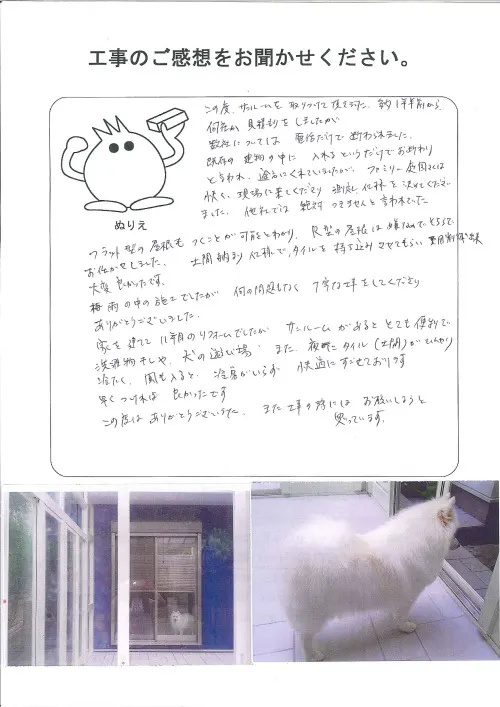 工事のご感想をお聞かせください。
この度、サンルームを取りつけて頂きました。約1年半前から、
何社か見積りをしましたが
数社については電話だけで断わられました。
既存の建物の中に入れるというだけでお断わり
と言われ、途方にくれていましたが、ファミリー庭園さんは
快く、現場に来てくださり測定、仕様を決めてくださいました。他社では絶対つきませんと言われていた
フラット型の屋根もつくことが可能とわかり、R型の屋根は嫌なのでとちらで
お任せしました。土間納まり仕様で、タイルを持ち込みさせてもらい
大変良かったです。
梅雨の中の施工でしたが何の問題もなく丁寧な工事をしてくださり
ありがとうございました。
家を建てて11年目のリフォームでしたがサンルームがあるととても便利で
洗濯物干しや、犬の遊び場また、夜時にタイル(土間)がひんやり
冷たく、風も入ると、冷房がいらず快適にすごせております
早くつければ良かったです
この度はありがとうございました。また工事の際にはお願いしようと
思っています。
ぬりえ